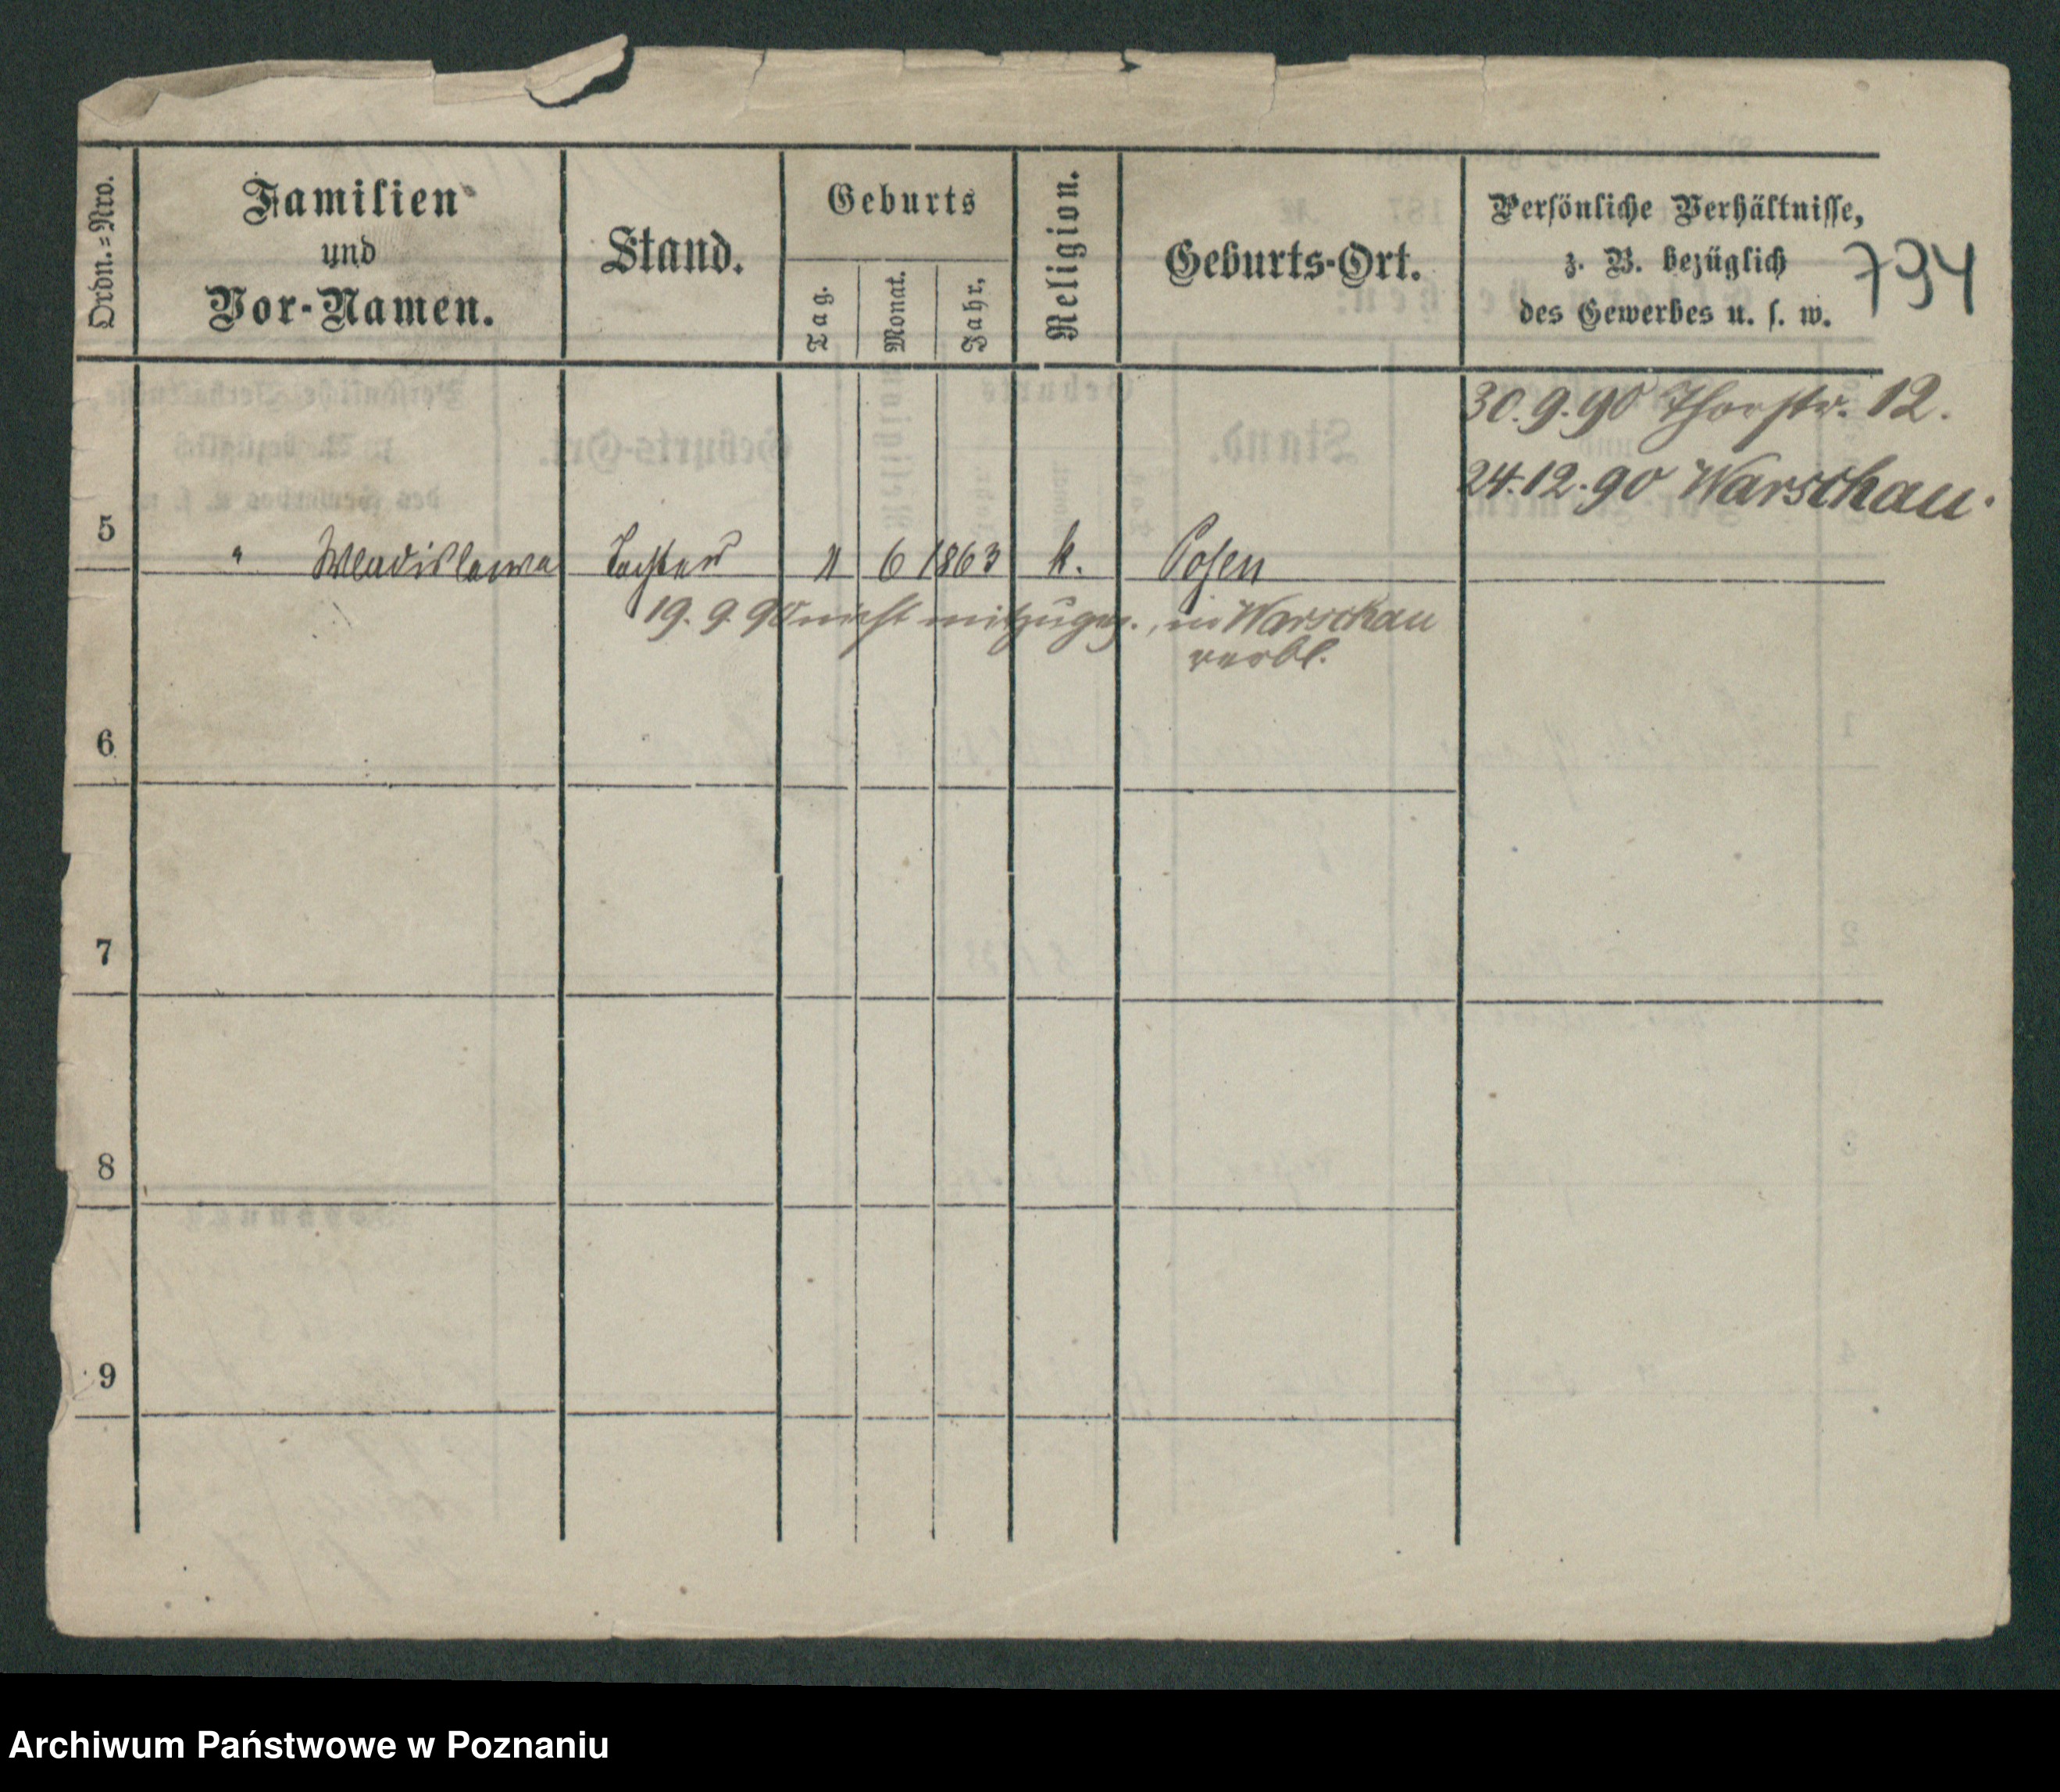 Ordn.=Nro.
Familien
und
Vor-Namen.
Stand.
Geburts
Tag.
Monat.
Jahr,
Religion.
Geburts-Ort.
Persönliche Verhältnisse,
z. B. bezüglich
des Gewerbes u. s. w.
794
30.9.90 Thorstr. 12.
24.12.90 Warschau.
5 " Wladislawa Tochter 11 6 1863 k. Posen
19. 9. 90 nicht mitzugez., in Warschau
verbl.
6
7
8
9
Archiwum Państwowe w Poznaniu